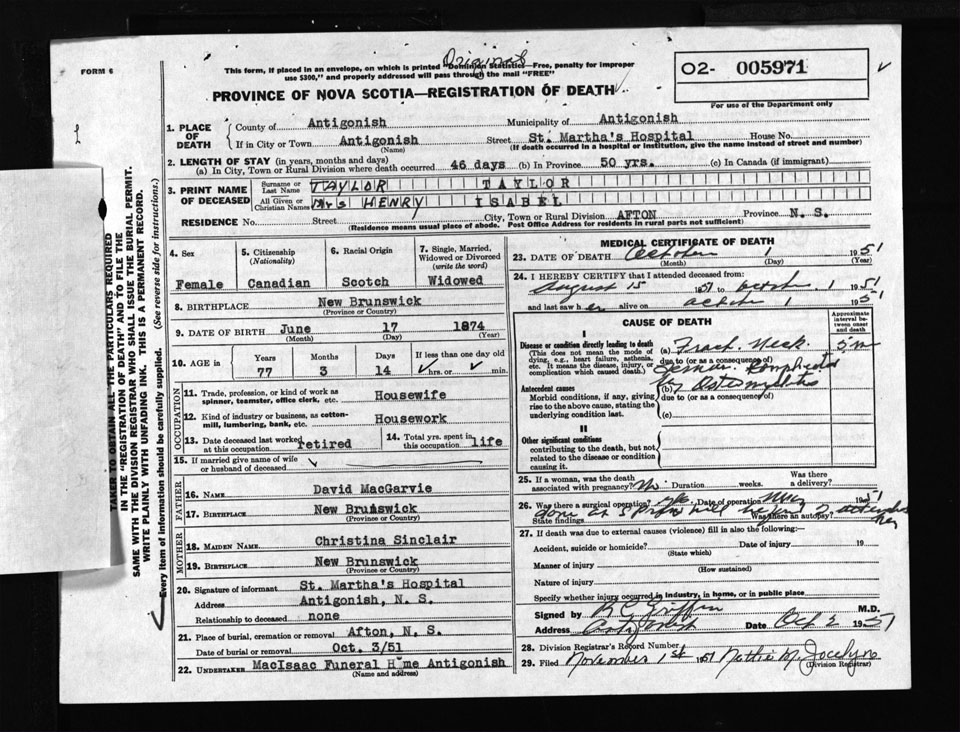 FORM 6
Original
This form, if placed in an envelope, on which is printed "Dominion Statistics—Free, penalty for improper
use $300," and properly addressed will pass through the mail "FREE"
PROVINCE OF NOVA SCOTIA—REGISTRATION OF DEATH
02- 005971
For use of the Department only
1. PLACE OF DEATH
County of Antigonish Municipality of Antigonish
If in City or Town Antigonish Street St. Martha's Hospital House No.
(Name) (If death occurred in a hospital or institution, give the name instead of street and number)
2. LENGTH OF STAY (in years, months and days)
(a) In City, Town or Rural Division where death occurred 46 days (b) In Province 50 yrs. (c) In Canada (if immigrant)
3. PRINT NAME OF DECEASED
Surname or Last Name TAYLOR TAYLOR
All Given or Christian Names Mrs HENRY ISABEL
RESIDENCE No. Street City, Town or Rural Division AFTON Province N. S.
(Residence means usual place of abode. Post Office Address for residents in rural parts not sufficient)
4. Sex
Female
5. Citizenship (Nationality)
Canadian
6. Racial Origin
Scotch
7. Single, Married, Widowed or Divorced (write the word)
Widowed
8. BIRTHPLACE New Brunswick
(Province or Country)
9. DATE OF BIRTH June 17 1874
(Month) (Day) (Year)
10. AGE in Years Months Days If less than one day old
77 3 14 hrs. or min.
OCCUPATION
11. Trade, profession, or kind of work as spinner, teamster, office clerk, etc. Housewife
12. Kind of industry or business, as cotton-mill, lumbering, bank, etc. Housework
13. Date deceased last worked at this occupation retired
14. Total yrs. spent in this occupation life
15. If married give name of wife or husband of deceased
FATHER
16. NAME David MacGarvie
17. BIRTHPLACE New Brunswick
(Province or Country)
MOTHER
18. MAIDEN NAME Christina Sinclair
19. BIRTHPLACE New Brunswick
(Province or Country)
20. Signature of informant St. Martha's Hospital
Address Antigonish, N. S.
Relationship to deceased none
21. Place of burial, cremation or removal Afton, N. S.
Date of burial or removal Oct. 3/51
22. UNDERTAKER MacIsaac Funeral Home Antigonish
(Name and address)
MEDICAL CERTIFICATE OF DEATH
23. DATE OF DEATH October 1 1951
(Month) (Day) (Year)
24. I HEREBY CERTIFY that I attended deceased from:
August 15 1951 to October 1 1951
and last saw her alive on October 1 1951
CAUSE OF DEATH
Approximate interval between onset and death
I
Disease or condition directly leading to death
(This does not mean the mode of dying, e.g., heart failure, asthenia, etc. It means the disease, injury, or complication which caused death.)
(a) Fract. Neck
due to (or as a consequence of)
Femur. Complicated
Antecedent causes
Morbid conditions, if any, giving rise to the above cause, stating the underlying condition last.
(b) by Osteomyelitis
due to (or as a consequence of)
(c)
II
Other significant conditions contributing to the death, but not related to the disease or condition causing it.
25. If a woman, was the death associated with pregnancy? No Duration weeks. Was there a delivery?
26. Was there a surgical operation? Yes Date of operation May 1951
State findings Was there an autopsy?
27. If death was due to external causes (violence) fill in also the following:—
Accident, suicide or homicide? Date of injury 19
(State which)
Manner of injury
(How sustained)
Nature of injury
Specify whether injury occurred in industry, in home, or in public place
Signed by R C Griffin M.D.
Address Antigonish Date Oct 2 1951
28. Division Registrar's Record Number
29. Filed November 1st 1951 Nettie M. Jocelyn
(Division Registrar)
TAKEN TO OBTAIN ALL THE PARTICULARS REQUIRED
IN THE "REGISTRATION OF DEATH" AND TO FILE THE
SAME WITH THE DIVISION REGISTRAR WHO SHALL ISSUE THE BURIAL PERMIT.
WRITE PLAINLY WITH UNFADING INK. THIS IS A PERMANENT RECORD.
Every item of information should be carefully supplied. (See reverse side for instructions.)